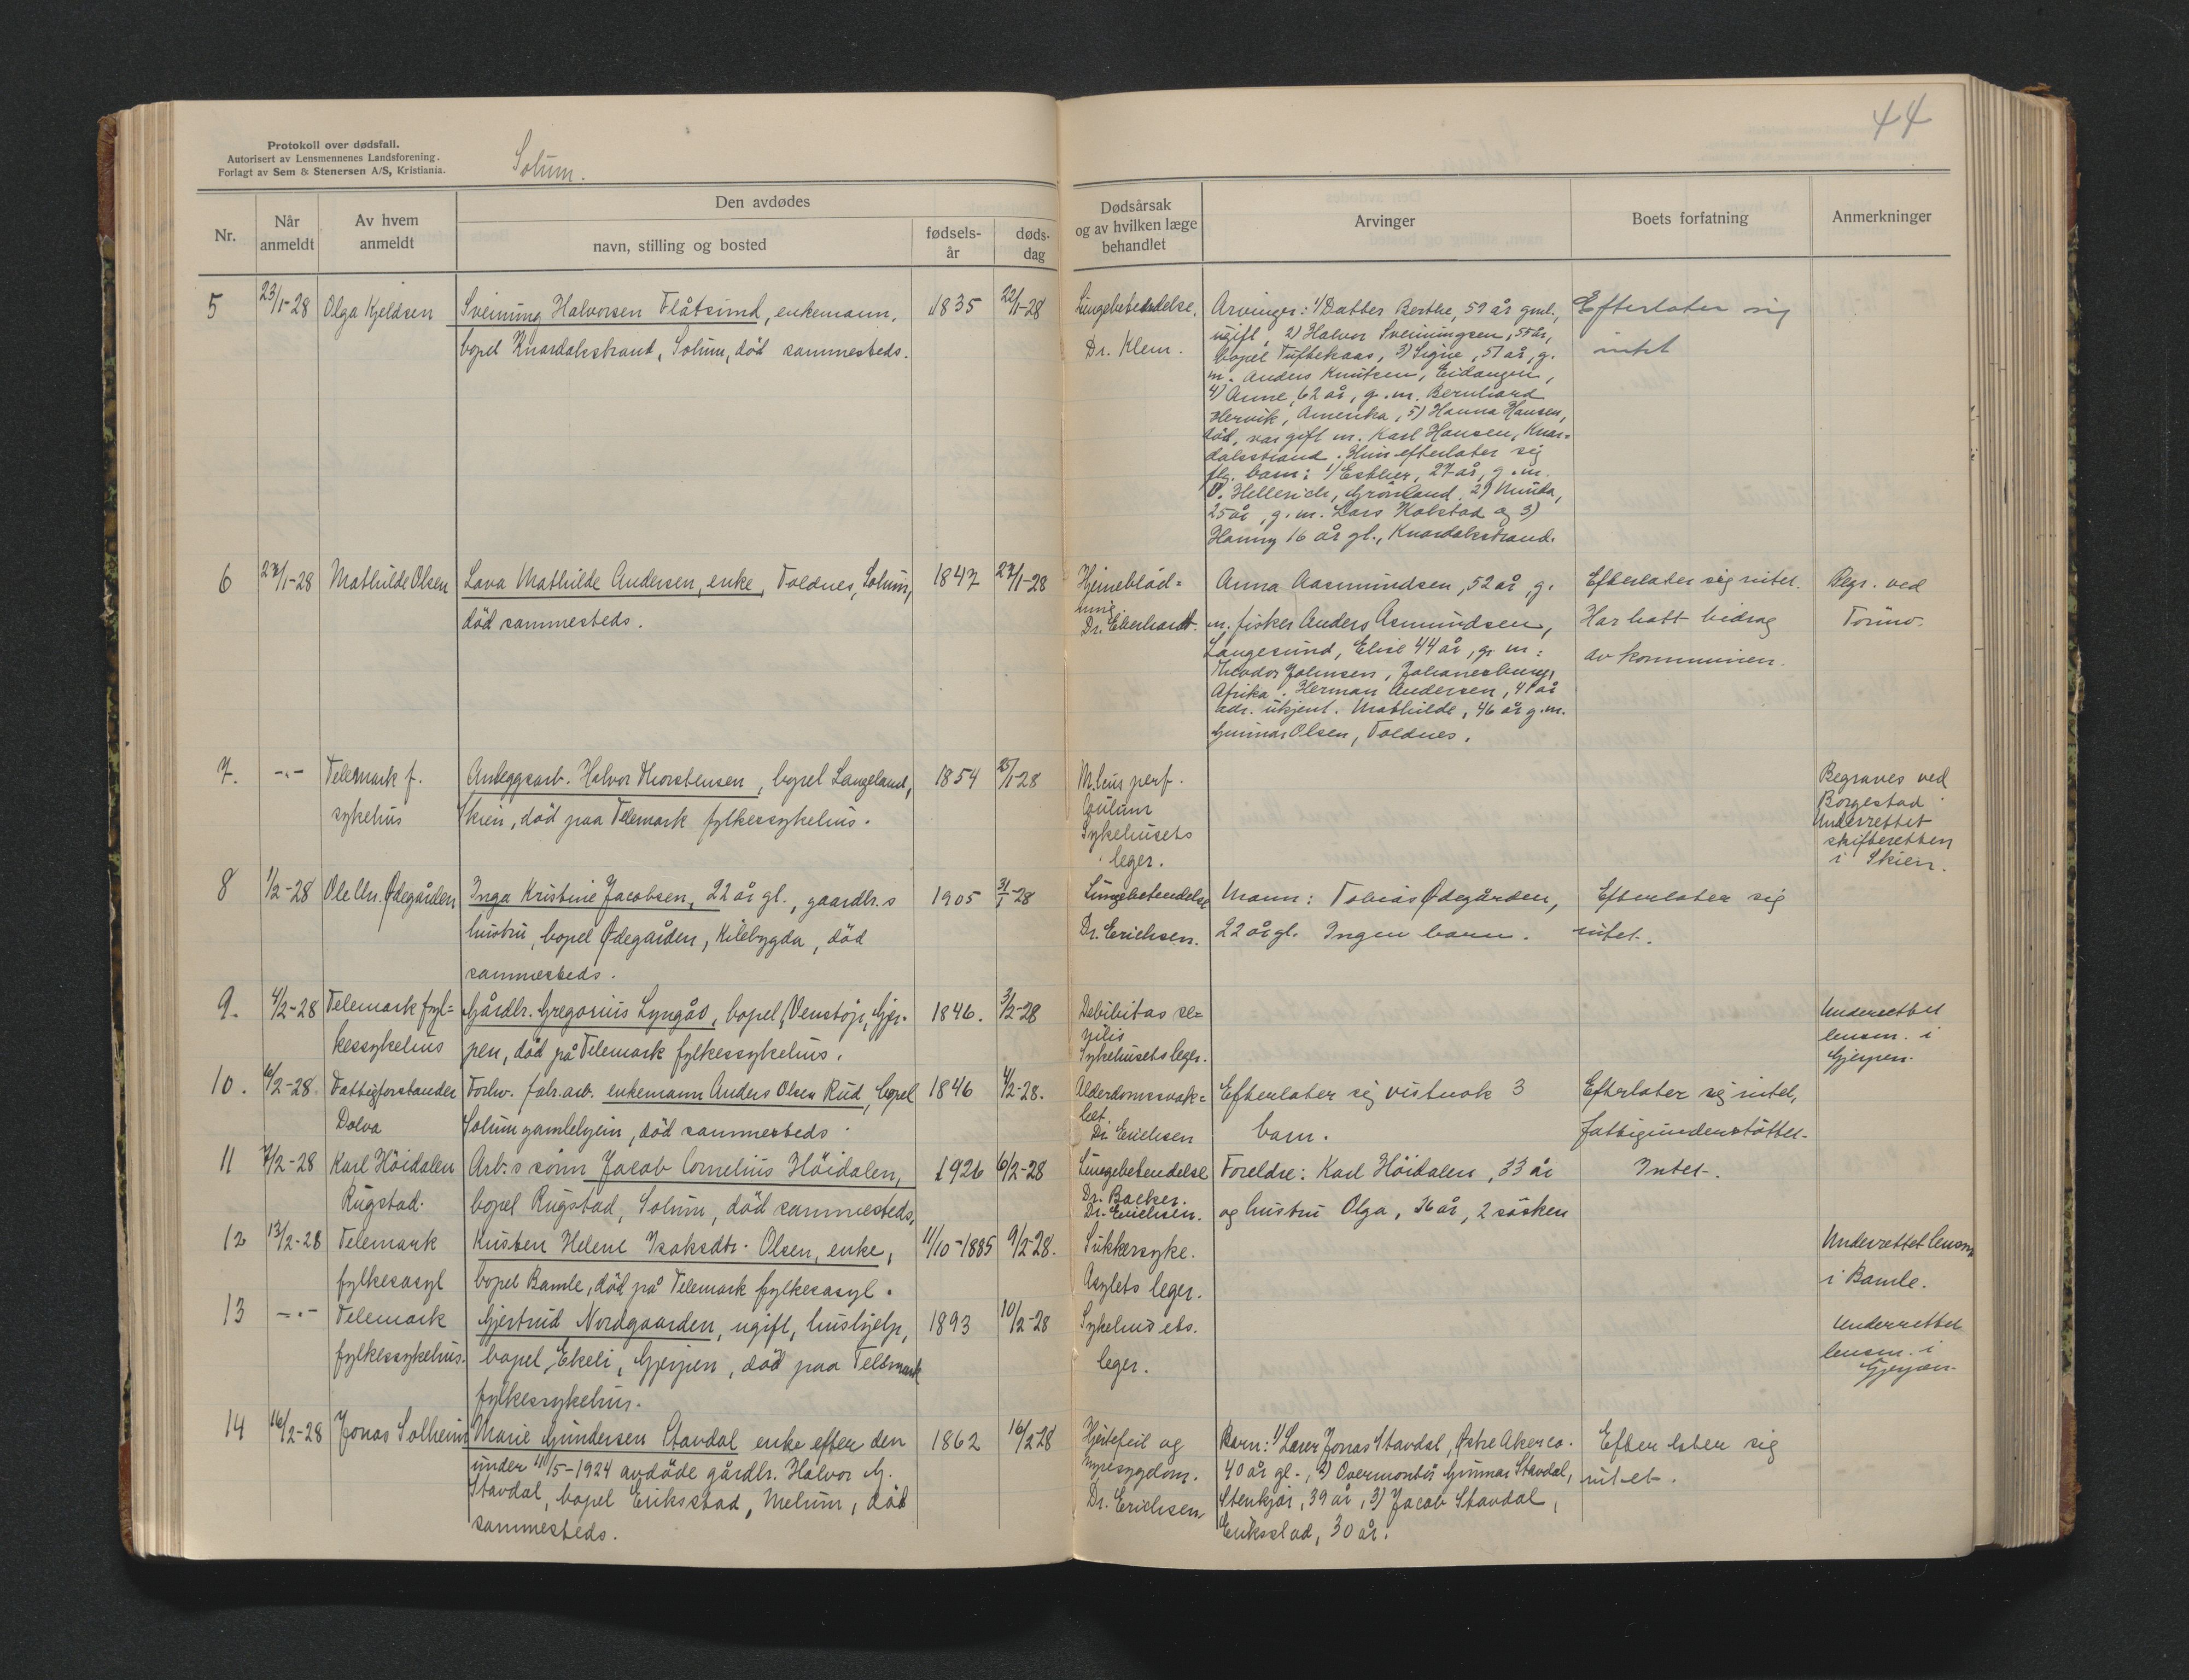 44
Protokoll over dødsfall.
Autorisert av Lensmennenes Landsforening.
Forlagt av Sem & Stenersen A/S, Kristiania.
Solum.
Nr.
Når anmeldt
Av hvem anmeldt
Den avdødes
navn, stilling og bosted
fødsels-år
døds-dag
Dødsårsak og av hvilken læge behandlet
Arvinger
Boets forfatning
Anmerkninger
5
23/1-28
Olga Kjeldsen
Sveinung Halvorsen Flåtsund, enkemann,
bopel Knardalsstrand, Solum, död sammesteds.
1835
22/1-28
Lungebetendelse.
Dr. Klem.
Arvinger: 1) Datter Berthe, 59 år gml.,
ugift, 2) Halvor Sveinungsen, 55 år,
bopel Tuftekaas, 3) Signe, 51 år, g.
m. Anders Knutsen, Eidanger,
4) Anne, 62 år, g.m. Bernhard
Hervik, Amerika, 5) Hanna Hansen,
död, var gift m. Karl Hansen, Knar=
dalsstrand. Hun efterlater sig
flg. barn: 1) Esther, 27 år, g.m.
Hellerich, Grönland, 2) Munda,
25 år, g.m. Lars Kolstad og 3)
Hanny 16 år gl., Knardalsstrand.
Efterlater sig
intet
6
27/1-28
Mathilde Olsen
Lava Mathilde Andersen, enke, Voldnes, Solum,
död sammesteds.
1847
27/1-28
Hjerneblöd=
ning.
Dr. Eberhardt.
Anna Aasmundsen, 52 år, g.
m. fisker Anders Asmundsen,
Langesund, Elise 44 år, g. m:
Theodor Johnsen, Johanesburg,
Afrika. Herman Andersen, 41 år
adr. ukjent. Mathilde, 46 år g.m.
Gunnar Olsen, Voldnes.
Efterlater sig intet.
Har hatt bidrag
av kommunen.
Begr. ved
7.
-.-
Telemark f.
sykehus
Anleggsarb. Halvor Thorstensen, bopel Langeland,
Skien, död paa Telemark fylkessykehus.
1854
25/1-28
perf.
Sykehusets
leger.
Begraves ved
Borgestad
Underrettet
skifteretten
i Skien.
8
1/2-28
Ole Chr. Ødegården
Inga Kristine Jacobsen, 22 år gl., gaardbr.s
hustru, bopel Ødegården, Kilebygda, död
sammesteds.
1905
31/1-28
Lungebetendelse
Dr. Erichsen.
Mann: Tobias Ødegården,
22 år gl. Ingen barn.
Efterlater sig
intet.
9.
4/2-28
Telemark fyl=
kessykehus
Gårdbr. Gregorius Lyngås, bopel Venstöp, Gjer-
pen, död på Telemark fylkessykehus.
1846.
3/2-28
Debilitas se=
nilis
Sykehusets leger.
Underrettet
lensm. i
Gjerpen.
10.
6/2-28.
Fattigforstander
Dolva
Forhv. fabr.arb. enkemann Anders Olsen Rud, bopel
Solum gamlehjem, död sammesteds.
1846
4/2-28.
Alderdomssvak=
het.
Dr. Erichsen
Efterlater sig vistnok 3
barn.
Efterlater sig intet,
fattigunderstöttet.
11
7/2-28
Karl Höidalen
Rugstad.
Arb.s sönn Jacob Cornelius Höidalen,
bopel Rugstad, Solum, död sammesteds,
1926
6/2-28
Lungebetendelse
Dr. Backer.
Dr. Erichsen.
Foreldre: Karl Höidalen, 33 år
og hustru Olga, 26 år, 2 sösken
Intet.
12
13/2-28
Telemark
fylkesasyl
Kirsten Helene Isaksdtr. Olsen, enke,
bopel Bamle, död på Telemark fylkesasyl.
11/10-1885
9/2-28.
Sukkersyke.
Asylets leger.
Underrettet lensm.
i Bamle.
13
-.-
Telemark
fylkessykehus.
Gjertrud Nordgaarden, ugift, hushjelp,
bopel Ekeli, Gjerpen, död paa Telemark
fylkessykehus.
1893
10/2-28
Sykehusets.
leger.
Underrettet
lensm. i
Gjerpen.
14
16/2-28
Jonas Solheim
Marie Gundersen Stavdal enke efter den
under 11/5-1924 avdöde gårdbr. Halvor G.
Stavdal, bopel Eriksstad, Melum, död
sammesteds.
1862
16/2-28
Hjertefeil og
nyresygdom.
Dr. Erichsen
Barn: 1) Lærer Jonas Stavdal, Østre Aker ca.
40 år gl., 2) Overmontör Gunnar Stavdal,
Stenkjær, 39 år, 3) Jacob Stavdal,
Eriksstad, 30 år.
Efterlater sig
intet.